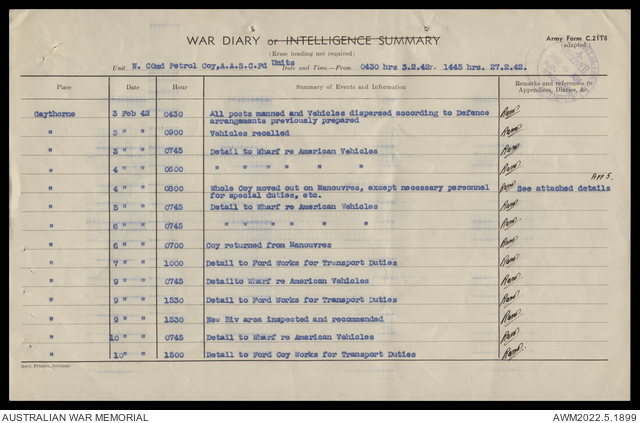 WAR DIARY or INTELLIGENCE SUMMARY
(Erase heading not required)
Army Form C.2118
(adapted)
Unit N. COmd Petrol Coy,A.A.S.C.Fd Units Date and Time—From 0430 hrs 3.2.42. 1445 hrs. 27.2.42.
Place Date Hour Summary of Events and Information Remarks and references to Appendices, Diaries, &c.
Gaythorne 3 Feb 42 0430 All posts manned and Vehicles dispersed according to Defence
arrangements previously prepared
" 3 " " 0900 Vehicles recalled
" 3 " " 0745 Detail to Wharf re American Vehicles
" 4 " " 0600 " " " " "
App 5.
" 4 " " 0800 Whole Coy moved out on Manouvres, except necessary personnel See attached details
for special duties, etc.
" 5 " " 0745 Detail to Wharf re American Vehicles
" 6 " " 0745 " " " " "
" 6 " " 0700 Coy returned from Manouvres
" 7 " " 1000 Detail to Ford Works for Transport Duties
" 9 " " 0745 Detailto Wharf re American Vehicles
" 9 " " 1530 Detail to Ford Works for Transport Duties
" 9 " " 1530 New Biv area inspected and recommended
" 10 " " 0745 Detail to Wharf re American Vehicles
" 10" " 1500 Detail to Ford Coy Works for Transport Duties
Govt. Printer, Brisbane
AUSTRALIAN WAR MEMORIAL
AWM2022.5.1899